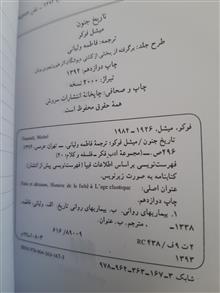 تاریخ جنون
میشل فوکو
ترجمه: فاطمه ولیانی
چاپ دوازدهم ۱۳۹۲
تیراژ: ۲۰۰۰ نسخه
چاپ و صحافی: چاپخانهٔ انتشارات سروش
همهٔ حقوق محفوظ است.
Foucault, Michel
فوکو، میشل، ۱۹۲۶ - ۱۹۸۴
تاریخ جنون / میشل فوکو؛ ترجمهٔ فاطمه ولیانی. — تهران: هرمس،
۲۹۶ ص. — (مجموعهٔ ادب فکر – فلسفه و کلام؛ ۲۰)
فهرست‌نویسی بر اساس اطلاعات فیپا (فهرست‌نویسی پیش از انتشار)
کتابنامه به صورت زیرنویس.
عنوان اصلی: Folie et déraison, Histoire de la folie à l'age classique
چاپ دوازدهم.
۱. بیماریهای روانی. ب. بیماریهای روانی تاریخ. الف. ولیانی، فاطمه،
۱۳۳۸ – ، مترجم. ب. عنوان.
۶۱۶/۸۹۰۰۹
RC ۴۳۸ / ف ۹ ت ۲
۱۳۹۳